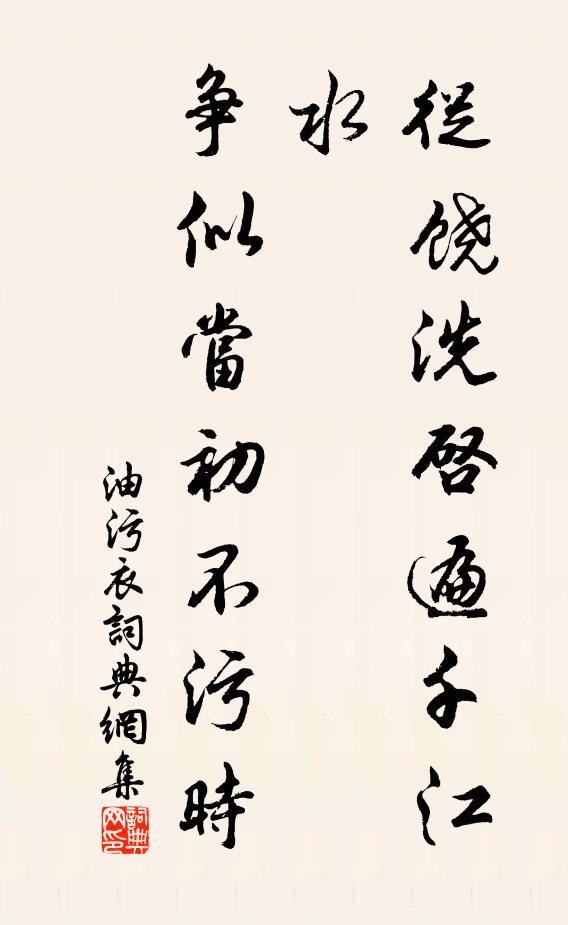 從饶洗啓遍千江
水
争似當初不污時
油污衣詞典網集
詞典網印